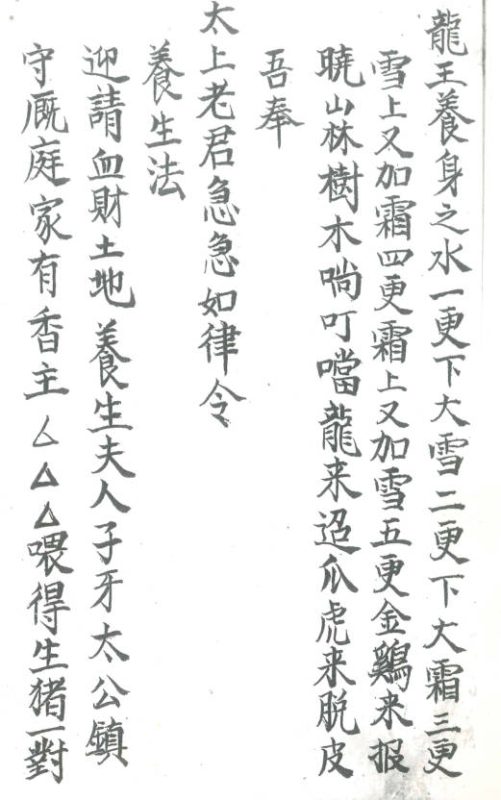 龍王養身之水一更下大雪二更下大霜三更
雪上又加霜四更霜上又加雪五更金鷄来报
曉山林樹木啲叮噹龍来迢爪虎来脱皮
吾奉
太上老君急急如律令
養生法
迎請血財土地養生夫人子牙太公鎮
守厩庭家有香主厶厶厶喂得生猪一對